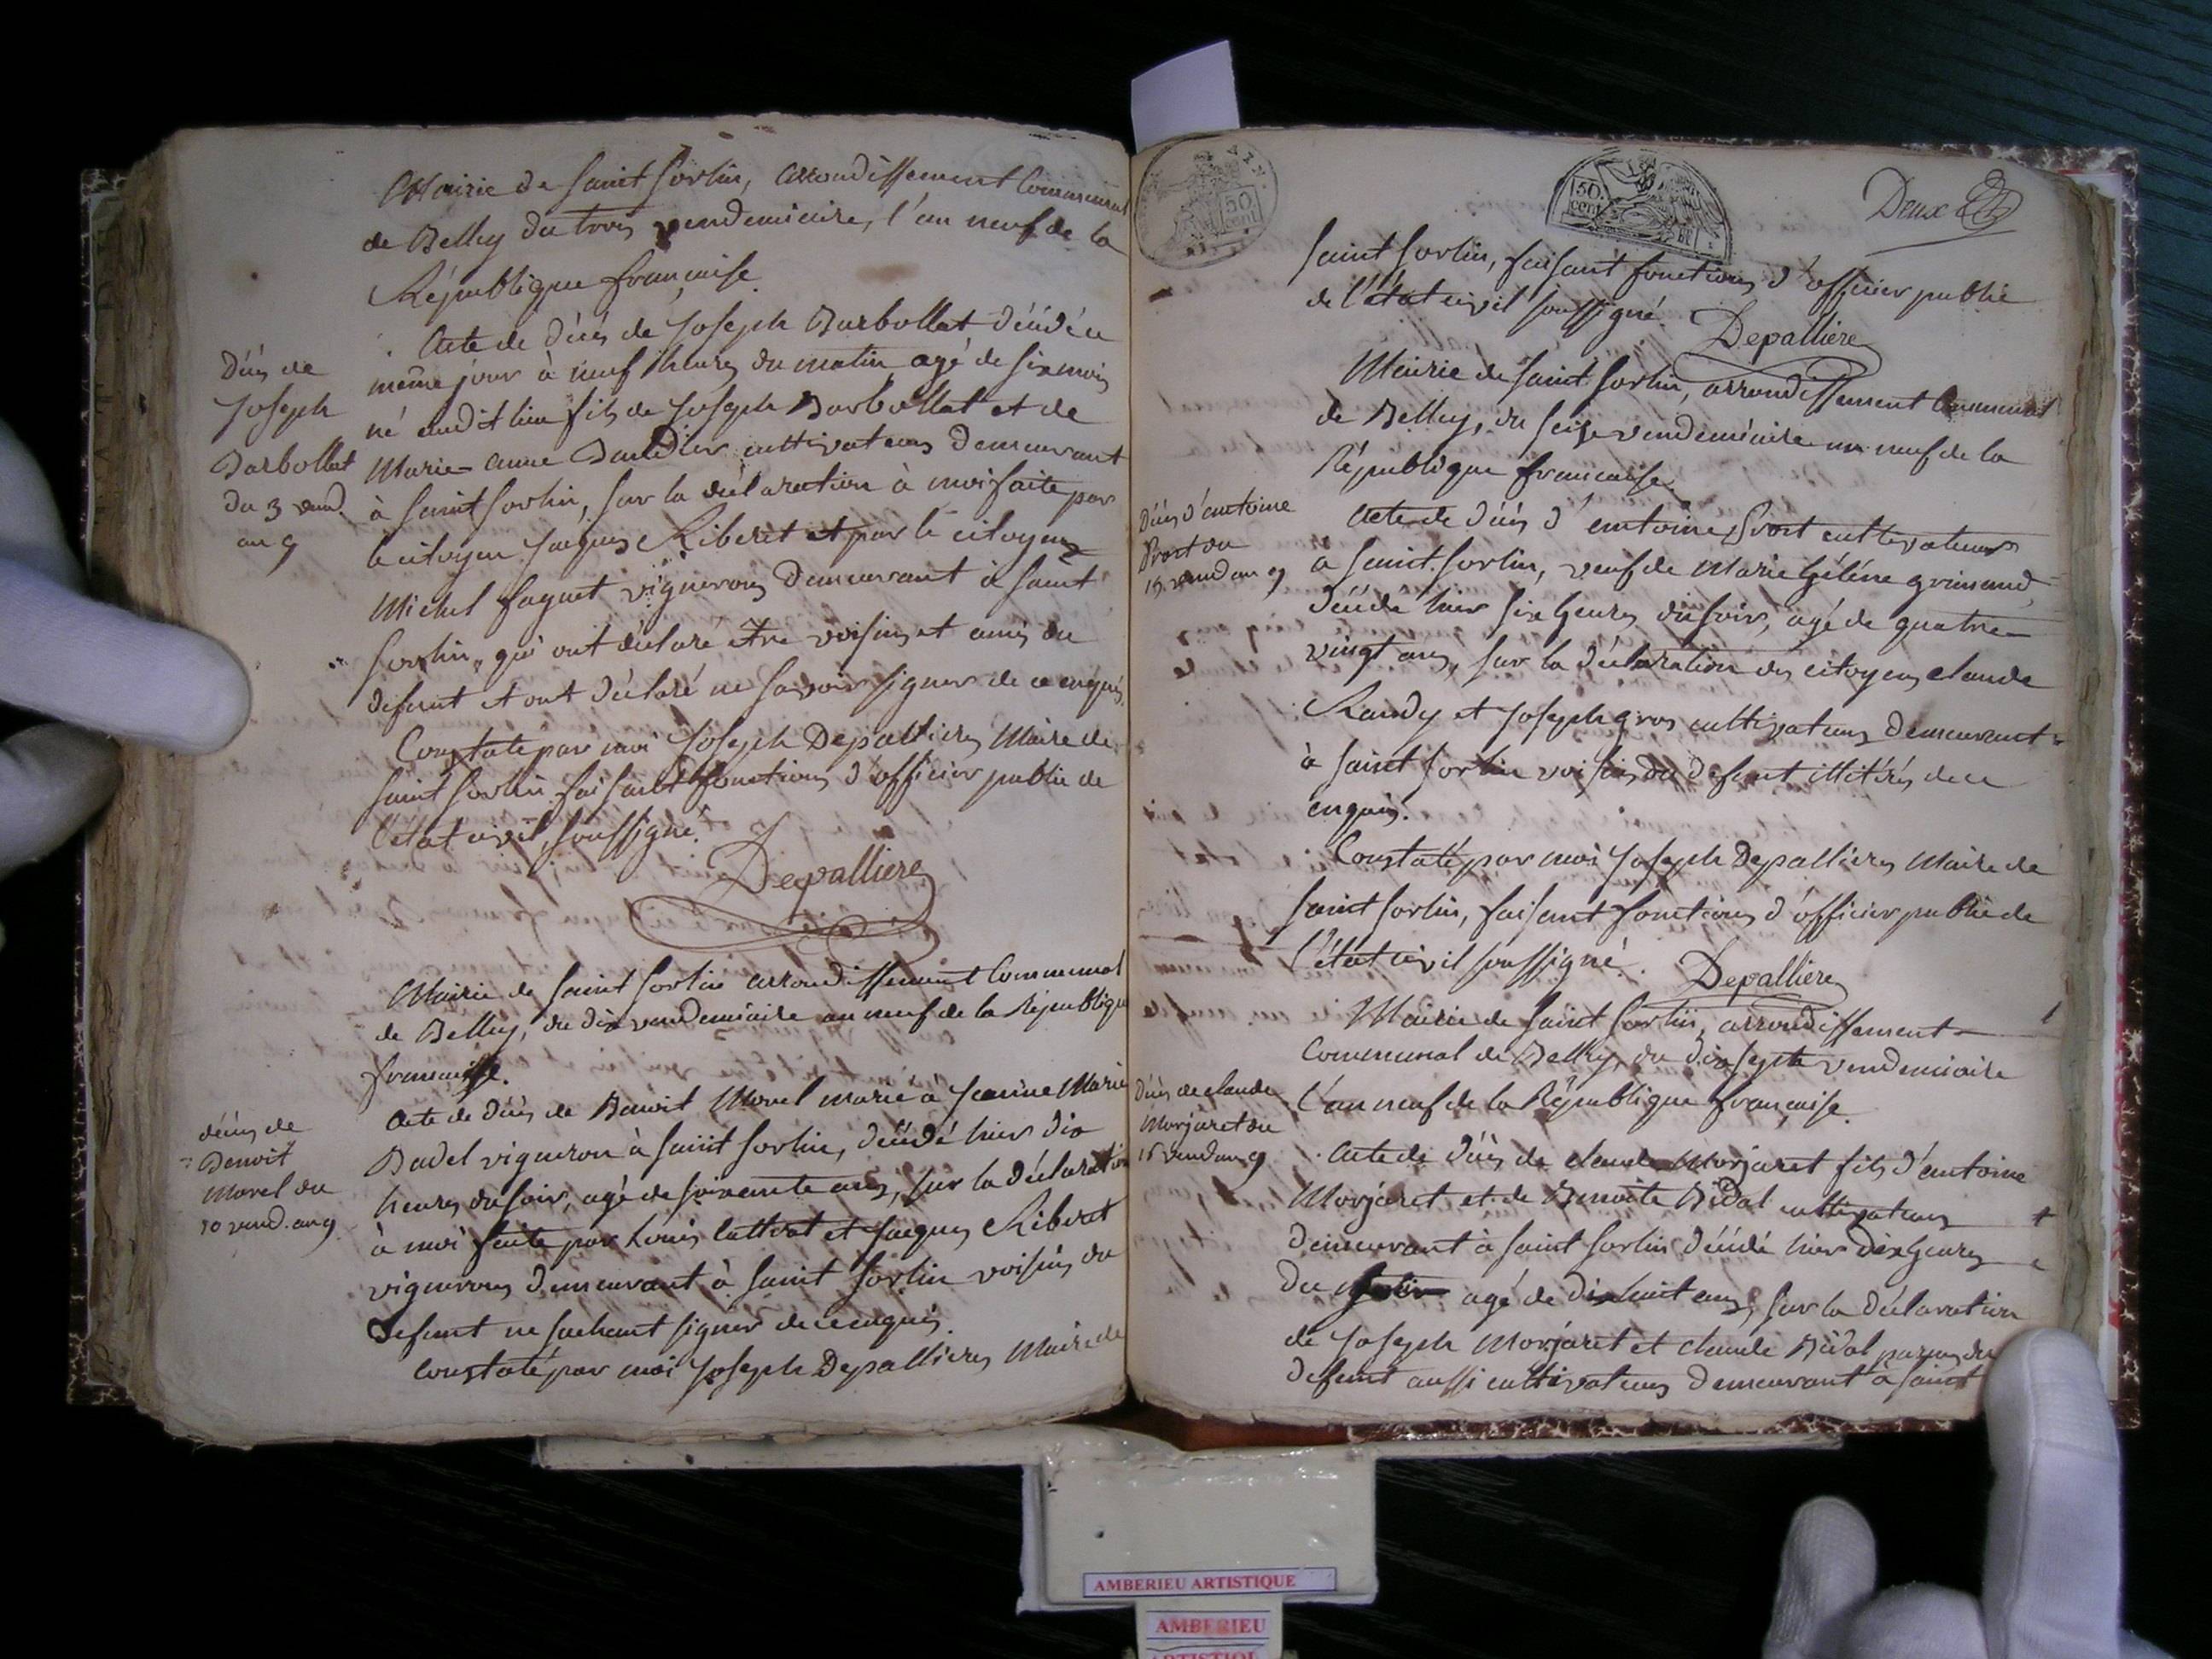 Mairie de Saint Sorlin, arrondissement Communal
de Belley du trois vendemiaire, l'an neuf de la
République française.
Acte de décés de Joseph Barbollat décédé ce
même jour à neuf heures du matin agé de six mois
né audit lieu fils de Joseph Barbollat et de
Marie-anne cultivateurs demeurant
à Saint Sorlin, sur la déclaration à moi faite par
le citoyen Jacques Riberet et par le citoyen
Michel faguet vignerons demeurant à Saint
Sorlin, qui ont déclaré etre voisins et amis du
defunt et ont déclaré ne savoir signer de ce enquis.
Constaté par moi Joseph Depallieres Maire de
Saint Sorlin faisant fonctions d'officier public de
l'état civil, soussigné.
Depalliere
Décés de
Joseph
Barbollat
du 3 vend.
an 9
Mairie de Saint Sorlin arrondissement Communal
de Belley, du dix vendemiaire an neuf de la République
francaise.
Acte de décés de Benoit Morel marié à Jeanne Marie
Badel vigneron à Saint Sorlin, décédé hier dix
heures du soir, agé de soixante ans, sur la déclaration
à moi faite par Louis et Jacques Riberat
vignerons demeurant à Saint Sorlin voisins du
defunt ne sachant signer de ce enquis.
Constaté par moi Joseph Depallieres Maire de
décés de
Benoit
Morel du
10 vend. an 9
50 cent
50. cent
Deux
Saint Sorlin, faisant fonctions d'officier public
de l'état civil soussigné.
Depalliere
Mairie de Saint Sorlin, arrondissement Communal
de Belley, du seize vendemiaire an neuf de la
République francaise.
Acte de décés d'antoine Prost cultivateur
a Saint Sorlin, veuf de Marie héléne grimaud,
décédé hier six heures du soir, agé de quatre-
vingt ans, sur la déclaration des citoyens claude
Randy et Joseph gros cultivateurs demeurant
à Saint Sorlin voisins du defunt illitérés de ce
enquis.
Constaté par moi Joseph Depallieres Maire de
Saint Sorlin, faisant fonctions d'officier public de
l'état civil soussigné.
Depalliere
Décés d'antoine
Prost du
15. vend an 9
Mairie de Saint Sorlin, arrondissement
Communal de Belley, du dix sept vendemiaire
l'an neuf de la République française.
Acte de décés de claude Morjaret fils d'antoine
Morjaret et de Benoite Bidal cultivateurs
demeurant à Saint Sorlin décédé hier dix heures
du agé de dix huit ans, sur la déclaration
de Joseph Morjaret et claude Bidal parens du
defunt aussi cultivateurs demeurant à Saint
Décés de claude
Morjaret du
16 vend an 9
AMBERIEU ARTISTIQUE
AMBERIEU
ARTISTIQUE